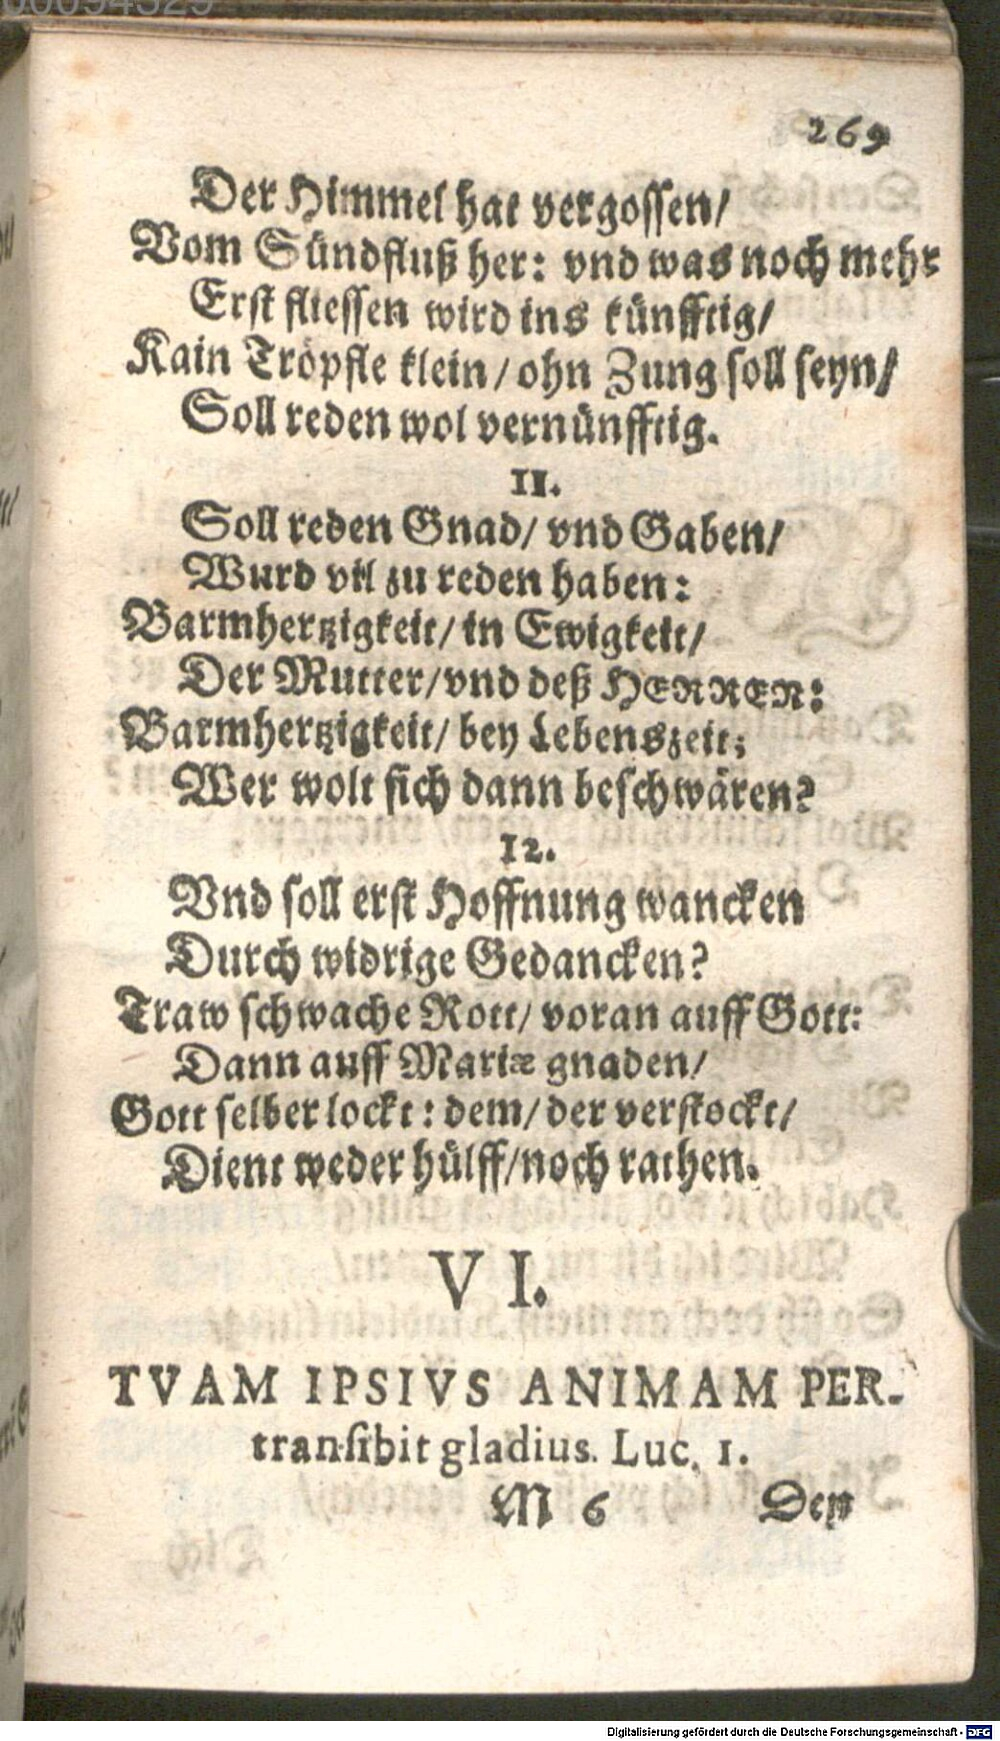 269
Der Himmel hat vergossen/
Vom Sündfluß her: vnd was noch mehr
Erst fliessen wird ins künfftig/
Kain Tröpfle klein/ ohn Zung soll seyn/
Soll reden wol vernünfftig.
II.
Soll reden Gnad/ vnd Gaben/
Wurd vil zu reden haben:
Barmhertzigkeit/ in Ewigkeit/
Der Mutter/ vnd deß HERREN:
Barmhertzigkeit/ bey Lebenszeit;
Wer wolt sich dann beschwären?
12.
Vnd soll erst Hoffnung wancken
Durch widrige Gedancken?
Traw schwache Rott/ voran auff Gott:
Dann auff Mariæ gnaden/
Gott selber lockt: dem/ der verstockt/
Dient weder hülff/ noch rathen.
VI.
TVAM IPSIVS ANIMAM PER-
transibit gladius. Luc. 1.
M 6 Den
Digitalisierung gefördert durch die Deutsche Forschungsgemeinschaft - DFG